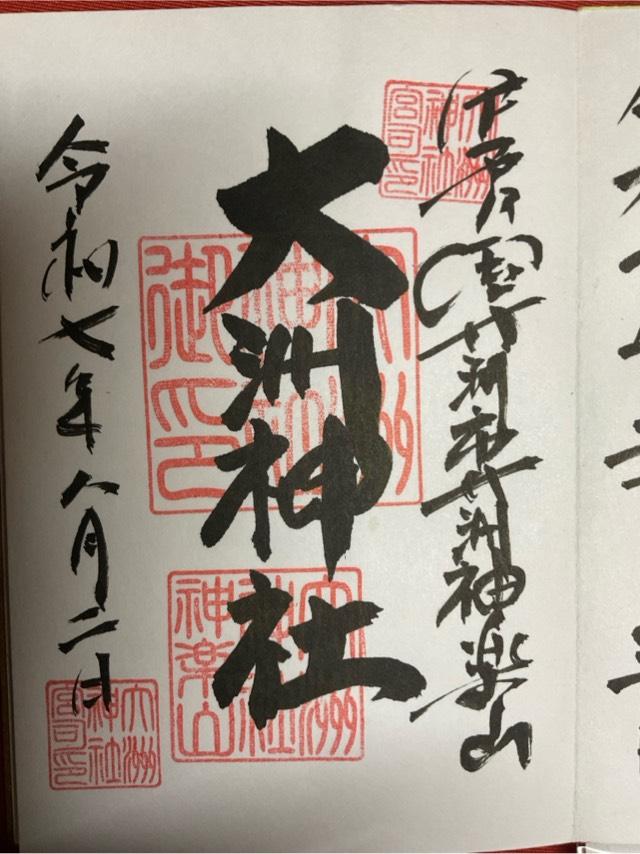 伊予国大洲市大洲神楽山
大洲神社
令和七年八月二日
大洲神社宮司印
大洲神社御印
大洲神社神楽山
大洲神社宮司印